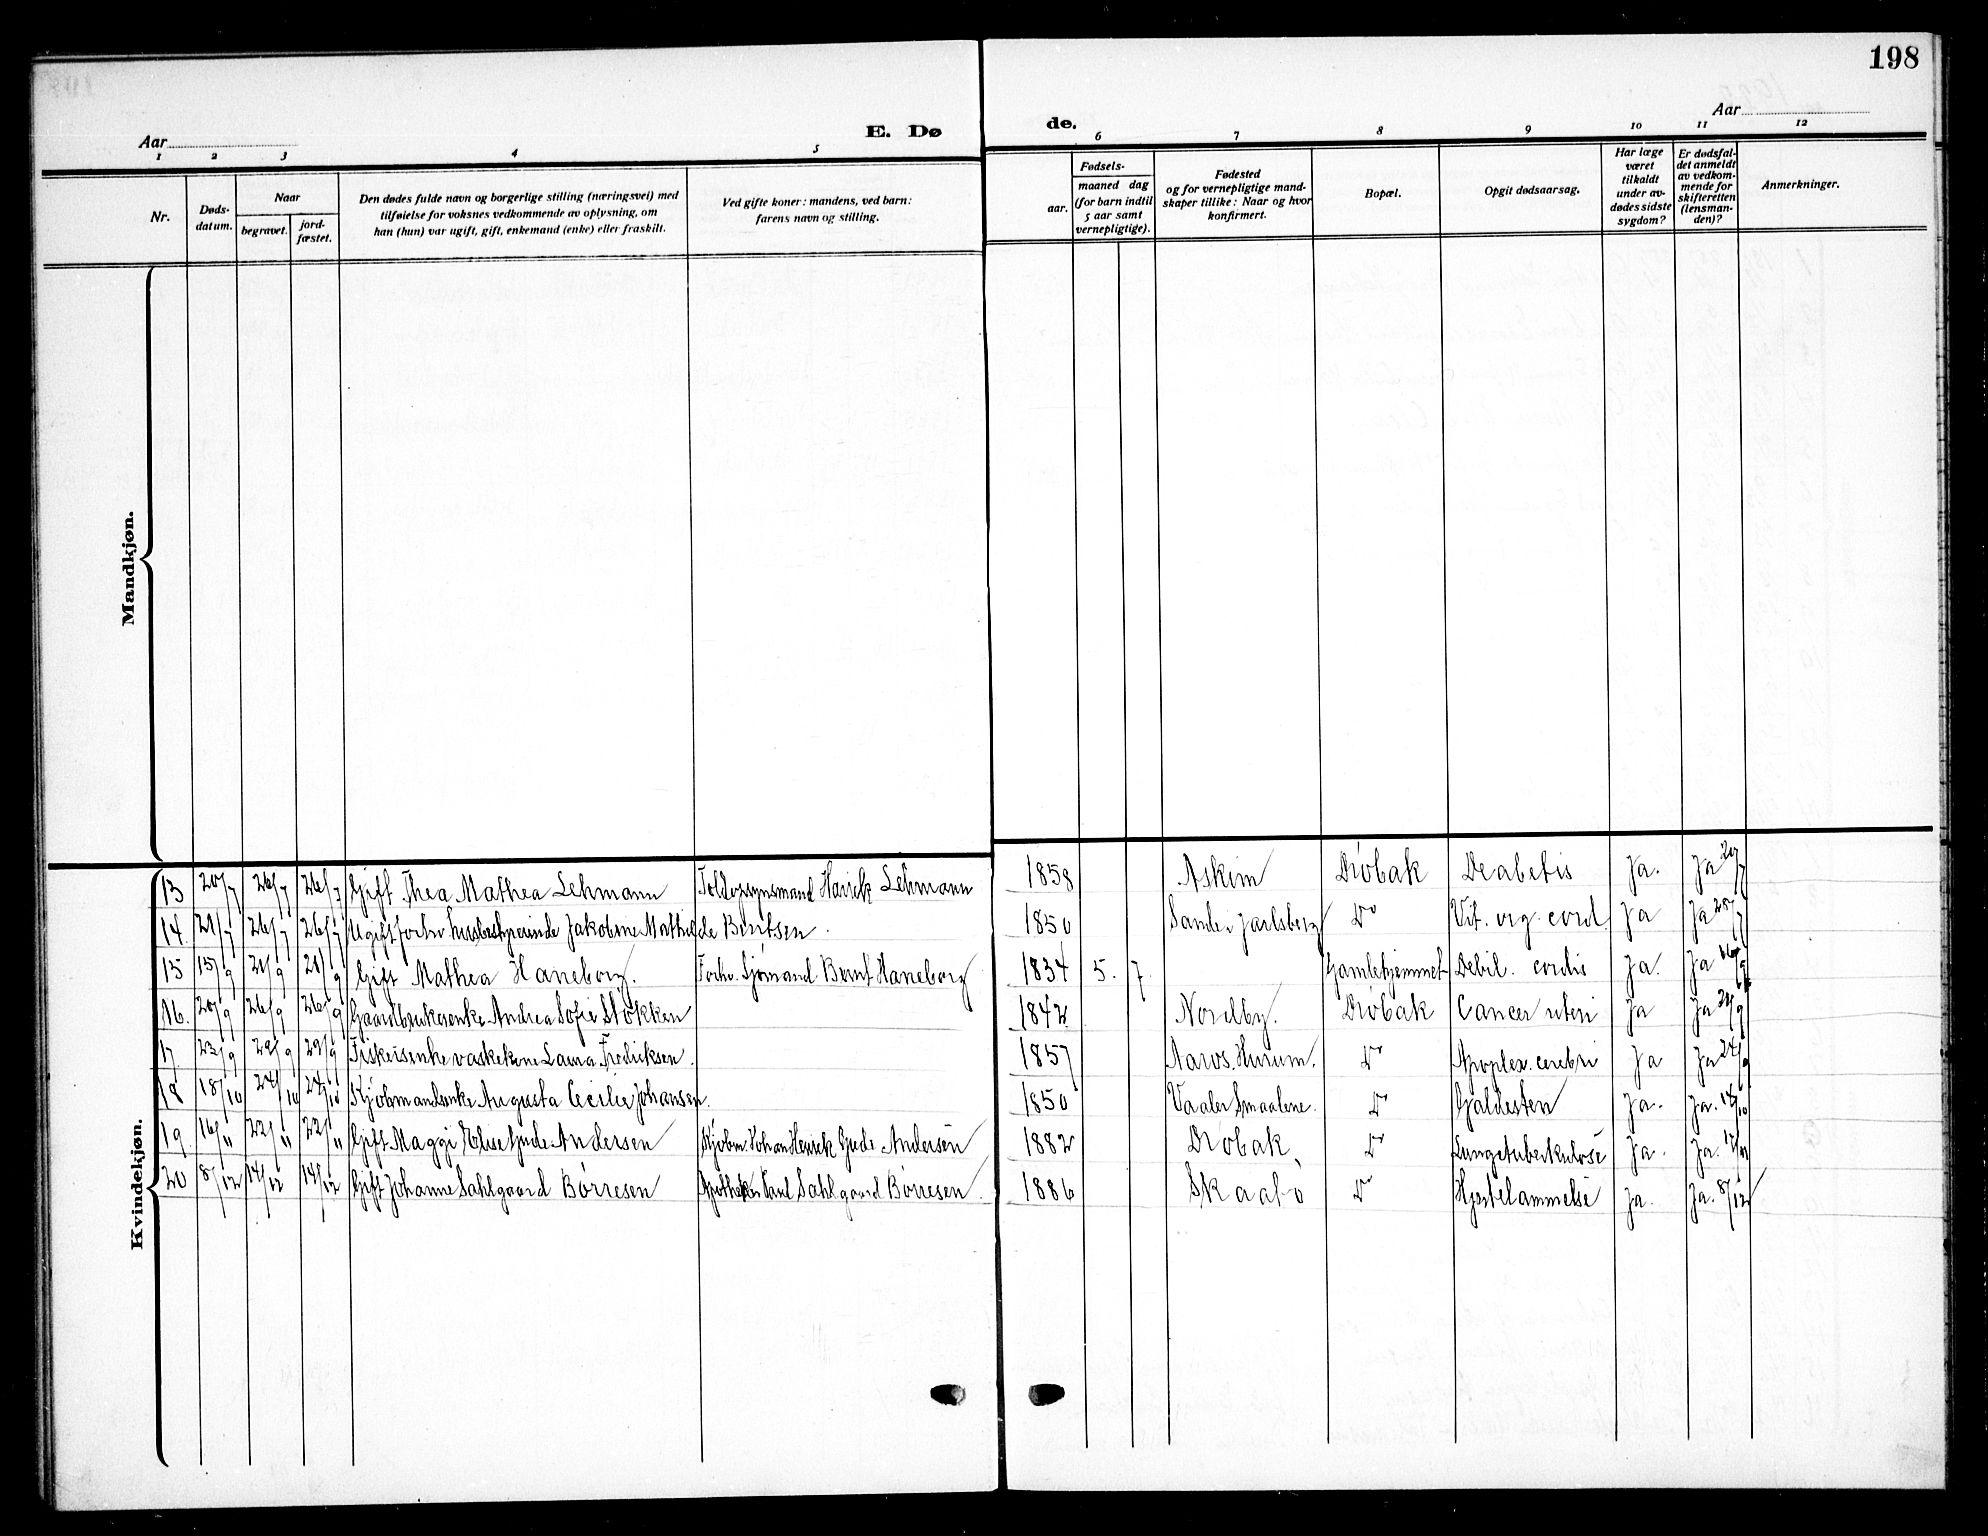 198
Aar
E. Dø
de.
Aar
1 2 3 4 5 6 7 8 9 10 11 12
Nr.
Døds-
datum.
Naar
begravet.
jord-
fæstet.
Den dødes fulde navn og borgerlige stilling (næringsvei) med
tilføielse for voksnes vedkommende av oplysning, om
han (hun) var ugift, gift, enkemand (enke) eller fraskilt.
Ved gifte koner: mandens, ved barn:
farens navn og stilling.
Fødsels-
aar.
maaned dag
(for barn indtil
5 aar samt
vernepligtige).
Fødested
og for vernepligtige mand-
skaper tillike: Naar og hvor
konfirmert.
Bopæl.
Opgit dødsaarsag.
Har læge
været
tilkaldt
under av-
dødes sidste
sygdom?
Er dødsfal-
det anmeldt
av vedkom-
mende for
skifteretten
(lensman-
den)?
Anmerkninger.
Mandkjøn.
Kvindekjøn.
13 20/7 26/7 26/7 Gift Thea Mathea Lehmann Toldopsynsmand Henrik Lehmann 1858 Askim Drøbak Deabetis Ja. Ja 20/7
14. 21/7 26/7 26/7 Ugift forhv husbestyrerinde Jakobine Mathilde Berntsen. 1850 Sande Jarlsberg Do Vit. org. cord. Ja Ja
15 15/9 21/9 21/9 Gift Mathea Haneborg. Forhv. Sjømand Bernt Haneborg 1834 5. 7. Gamlehjemmet Debil. cordis Ja. Ja 16/9
16. 20/9 26/9 26/9 Gaardbrukerenke Andrea Sofie Stokken 1842 Nordby. Drøbak Cancer uteri Ja Ja 21/9
17 23/9 29/9 29/9 Fiskerenke vaskekone Laura Fredriksen. 1857 Aaros. Hurum. Do Apoplex. cerebri Ja Ja 24/9
18 18/10 24/10 24/10 Kjøbmandsenke Augusta Cecilie Johansen. 1850 Vaaler Smaalene. Do Galdesten Ja. Ja. 18/10
19. 16/11 22/11 22/11 Gift Maggi Else Gjude Andersen Kjøbm. Johan Henrik Gjude Andersen 1882 Drøbak Do Lungetuberkulose Ja. Ja. 17/11
20 8/12 14/12 14/12 Gift Johanne Sahlgaard Børresen Apotheker Carl Sahlgaard Børresen. 1886 Skaabo Do Hjertelammelse Ja. Ja. 8/12